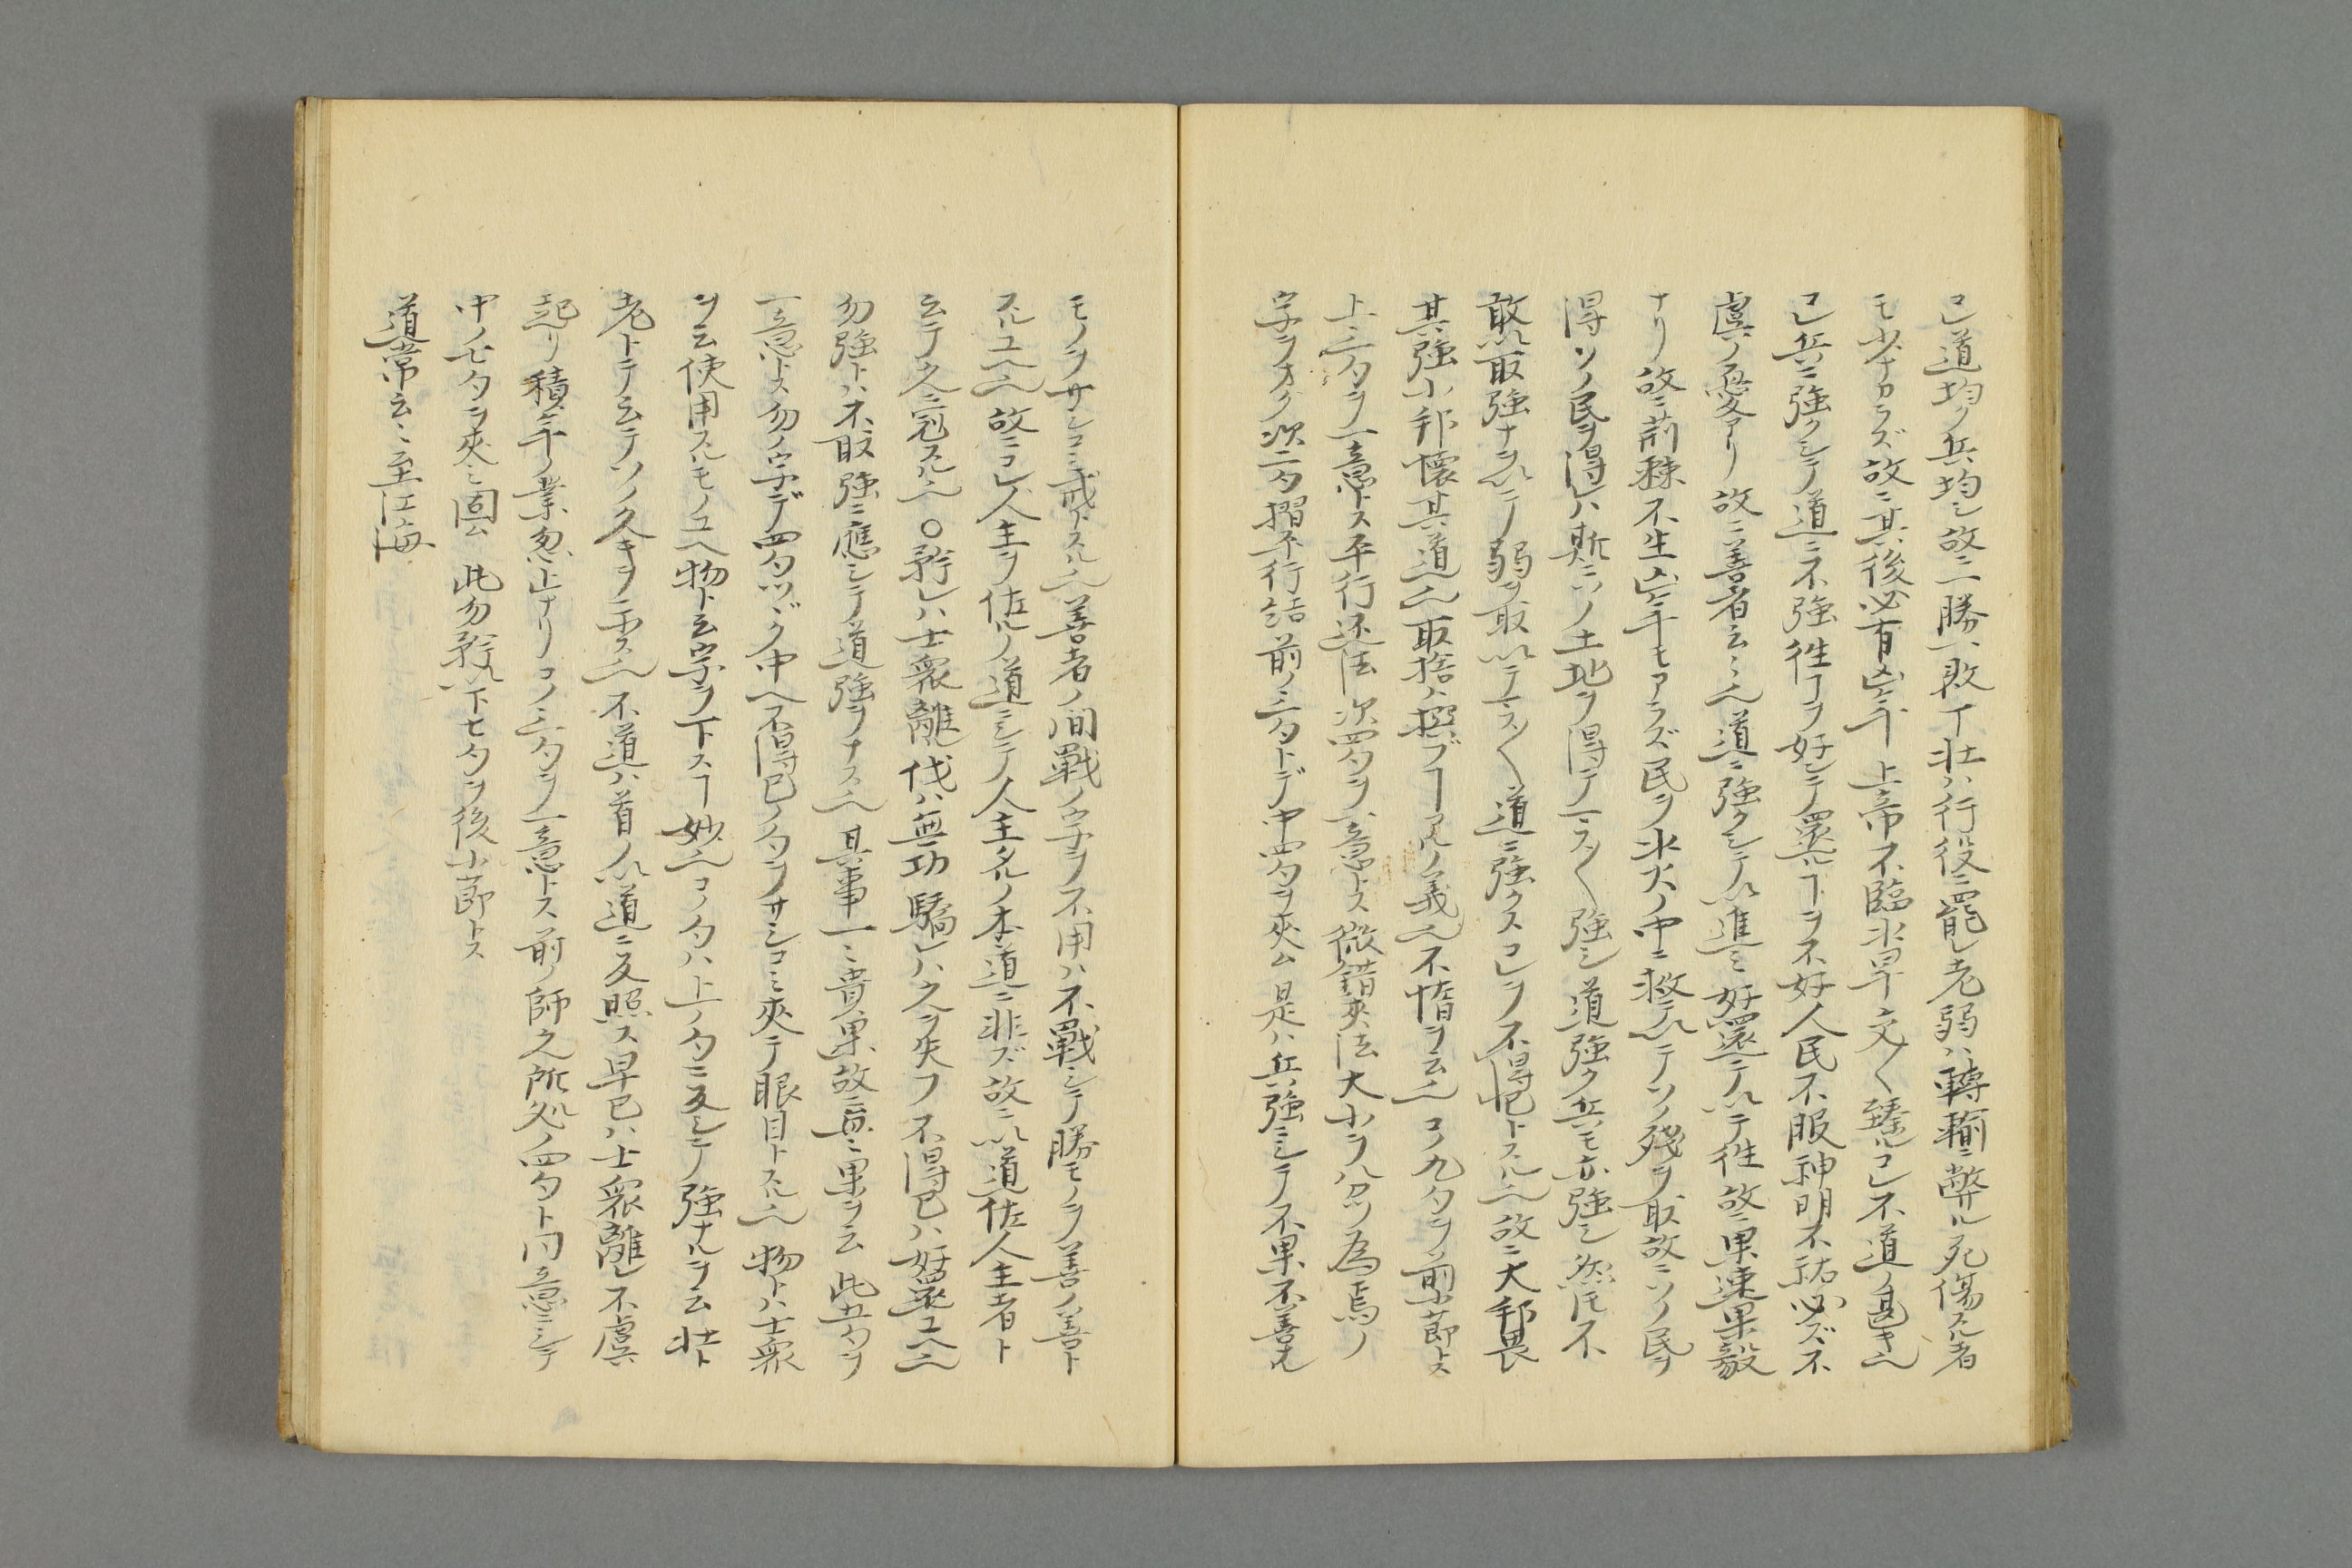 已道均ク兵均シ故ニ一勝一敗丁壮ハ行役ニ罷レ老弱ハ轉輸ニ弊ル死傷スル者
モ少ナカラズ故ニ其後必有凶年上帝不臨水旱交〱臻ルコレ不道ノ尤ナリ
已兵ニ強クシテ道ニ不強往ヿヲ好シテ還ルヿヲ不好人民不服神明不祐必ズ不
虞ノ憂アリ故ニ善者云〻也道ニ強クシテ以進ミ好還テ以テ往故ニ果速果毅
ナリ故ニ荊棘不生凶年モアラズ民ヲ水火ノ中ニ救テ以テソノ殘ヲ取故ニソノ民ヲ
得ソノ民ヲ得レハ斯ニソノ土地ヲ得テマス〱強シ道強ク兵モ亦強シ然レ𪜈不
敢以取強ナヲ以テ弱ヲ取以テマス〱道ニ強クスコレヲ不得已トスル也故ニ大邦畏
其強小邦懷其道也取捨ハ撰ブヿアルノ義也不惰ヲ云也コノ九句ヲ前小節トス
上三句ヲ一意トス平行逆法次四句ヲ一意トス微錯夾法大小ヲ分ツ為焉ノ
字ヲオク次二句摺平行結前ノ三句トデ中四句ヲ夾ム是ハ兵強ミシテ不果不善ナル
モノヲサシコミ戒トスル也善者ノ間戰ノ字ヲ不用ハ不戰シテ勝モノヲ善ノ善ト
スルユヘ也故ニコレ人主ヲ佐ルノ道ニシテ人主タルノ本道ニ非ズ故ニ以道佐人主者ト
云テ久ニ冠スル也〇矜レハ士衆離レ伐ハ無功驕レハ久ヲ失フ不得已ハ好還ユヘ也
勿強トハ不敢強ニ應シテ道強ヲナス也其事一ミ貴果故ニ毎ミ果ヲ云此五句ヲ
一意トス勿ノ字デ四句ツヾク中ヘ不得已ノ句ヲサシコミ夾テ眼目トスル也物トハ士衆
ヲ云使用スルモノユヘ物ト云字ヲ下スヿ妙也コノ句ハ上ノ句ニ反シテ強ナルヲ云壮ト
老トテ云テソノ久キヲ示ス也不道ハ首ノ以道ニ反照ス早已ハ士衆離レ不虞
起リ積年ノ業忽止ナリコノ三句ヲ一意トス前ノ師之所処ノ四句ト同意ニシテ
中ノ七句ヲ夾ミ固ム此勿矜以下七句ヲ後小節トス
道常云〻至江海